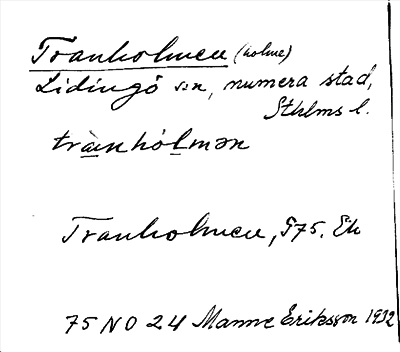 Tranholmen (holme)
Lidingö sn, numera stad,
Sthlms l.
tranhólmən
Tranholmen, F75. Ek
75 NO 24 Manne Eriksson 1932